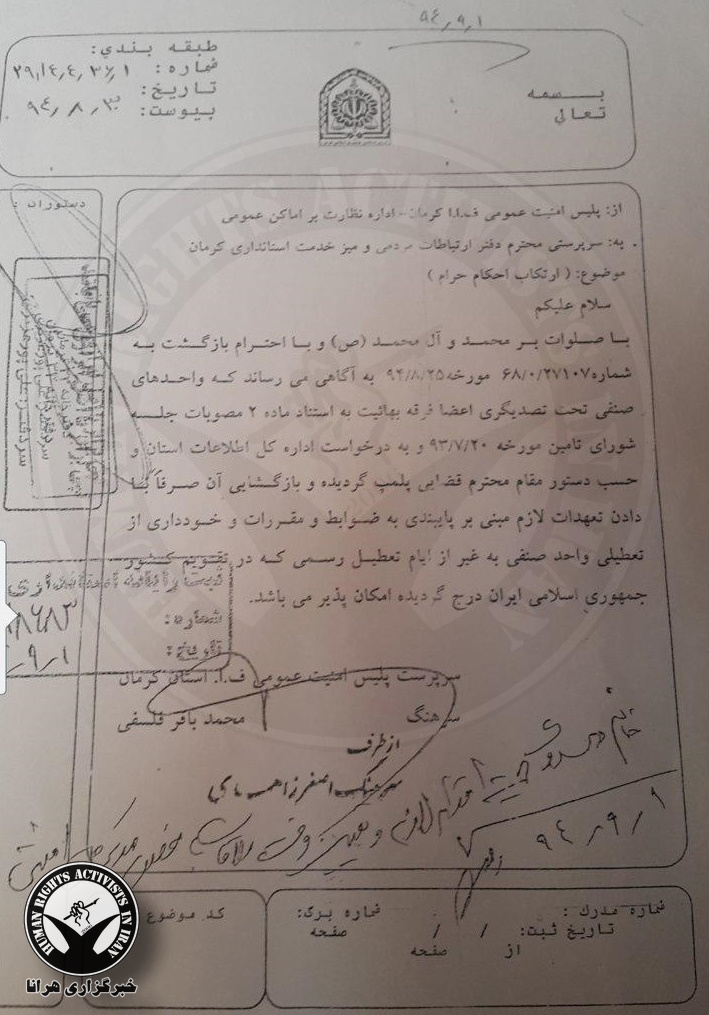 ۹۴٫۹٫۱
طبقه بندي:
شماره:
تاریخ:
بیوست: ۹۴٫۸٫
بـــسمه
تعالی
دستورات :
از: پلیس امنیت عمومی ف.ا.ا کرمان- اداره نظارت بر اماکن عمومی
به: سرپرستی محترم دفتر ارتباطات مردمی و میز خدمت استانداری کرمان
موضوع: ( ارتکاب احکام حرام )
سلام علیکم
با صلوات بر محمد و آل محمد (ص) و با احترام بازگشت به
شماره ۶۸/۰/۲۷۱۰۷ مورخه ۹۴/۸/۲۵ به آگاهی می رساند که واحدهای
صنفی تحت تصدیگری اعضا فرقه بهائیت به استناد ماده ۲ مصوبات جلسه
شورای تامین مورخه ۹۳/۷/۲۰ و به درخواست اداره کل اطلاعات استان و
حسب دستور مقام محترم قضایی پلمپ گردیده و بازگشایی آن صرفاً با
دادن تعهدات لازم مبنی بر پایبندی به ضوابط و مقررات و خودداری از
تعطیلی واحد صنفی به غیر از ایام تعطیل رسمی که در تقویم کشور
جمهوری اسلامی ایران درج گردیده امکان پذیر می باشد.
شماره:
تاریخ:
سرپرست پلیس امنیت عمومی ف.ا. استان کرمان
سرهنگ محمد باقر فلسفی
از طرف
سرهنگ اصغر
خانم
اقدام لازم و تعیین وقت ملاقات
۹۴٫۹٫۱
شماره مدرك :
تاریخ ثبت: / /
از صفحه
شماره برگ:
صفحه
کد موضوع
HUMAN RIGHTS ACTIVISTS IN IRAN
خبرگزاری هرانا